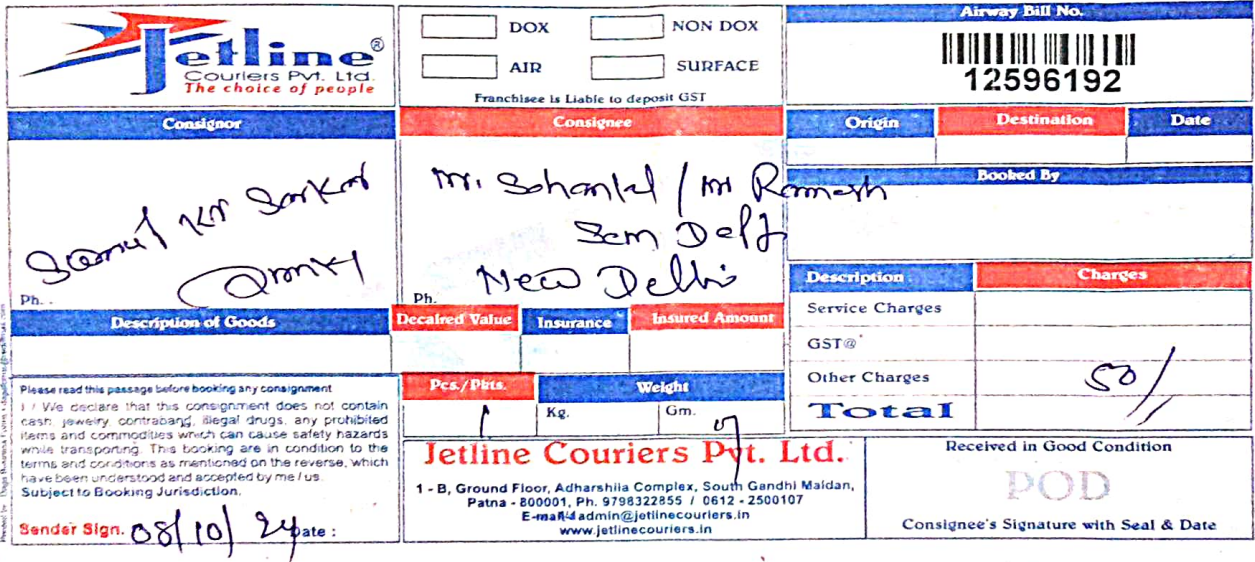 Jetline®
Couriers Pvt. Ltd.
The choice of people
DOX
NON DOX
AIR
SURFACE
Franchisee is Liable to deposit GST
Airway Bill No.
12596192
Consignor
Kr Sarkar
Ph. .
Consignee
Mr. / Mr Ramesh
New Delhi
Ph.
Origin
Destination
Date
Booked By
Description
Charges
Service Charges
GST@
Other Charges
50/
Total
Description of Goods
Decalred Value
Insurance
Insured Amount
Pcs./Pkts.
Weight
1
Kg.
Gm.
Please read this passage before booking any consignment
I / We declare that this consignment does not contain
cash, jewelry contraband, illegal drugs, any prohibited
items and commodities which can cause safety hazards
while transporting. This booking are in condition to the
terms and conditions as mentioned on the reverse, which
have been understood and accepted by me / us.
Subject to Booking Jurisdiction.
Sender Sign. 08/10/24 Date :
Jetline Couriers Pvt. Ltd.
1 - B, Ground Floor, Adharshila Complex, South Gandhi Maidan,
Patna - 800001, Ph. 9798322855 / 0612 - 2500107
E-mail admin@jetlinecouriers.in
www.jetlinecouriers.in
Received in Good Condition
POD
Consignee's Signature with Seal & Date